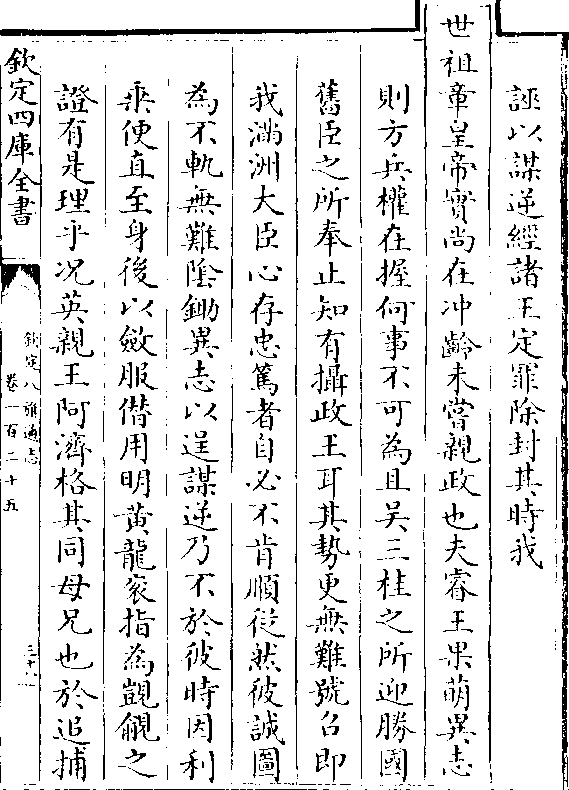 誣以謀逆經諸王定罪除封其時我
世祖章皇帝實尚在沖齡未嘗親政也夫睿王果萌異志
則方兵權在握何事不可為且吴三桂之所迎勝國
舊臣之所奉止知有攝政王耳其勢更無難號召即
我滿洲大臣心存忠篤者自必不肯順從然彼誠圖
為不軌無難陰鋤異志以逞謀逆乃不於彼時因利
乗便直至身後以斂服僣用明黄龍衮指為覬覦之
證有是理乎况英親王阿濟格其同母兄也於追捕
欽定四庫全書
欽定八旗通志
卷一百二十五